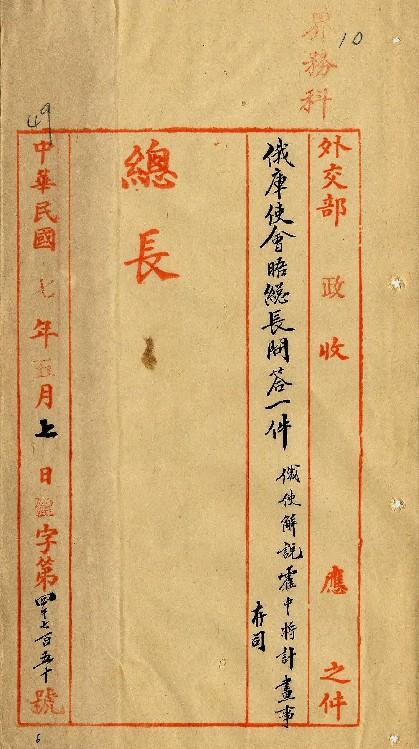 界務科
10
外交部 政 收 應 之件
俄庫使會晤總長問答一件 俄使解説霍中將計畫事
存司
總長
49
中華民國七年五月 日 字第 七百五十號
6